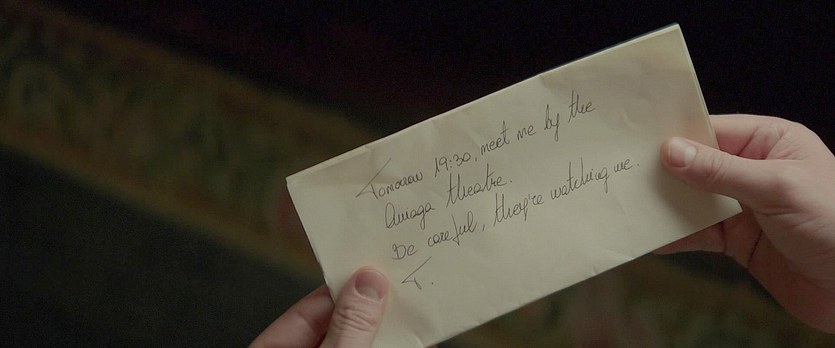 Tomorrow 19:30, meet me by the
Amaga theatre.
Be careful, they're watching me.
T.